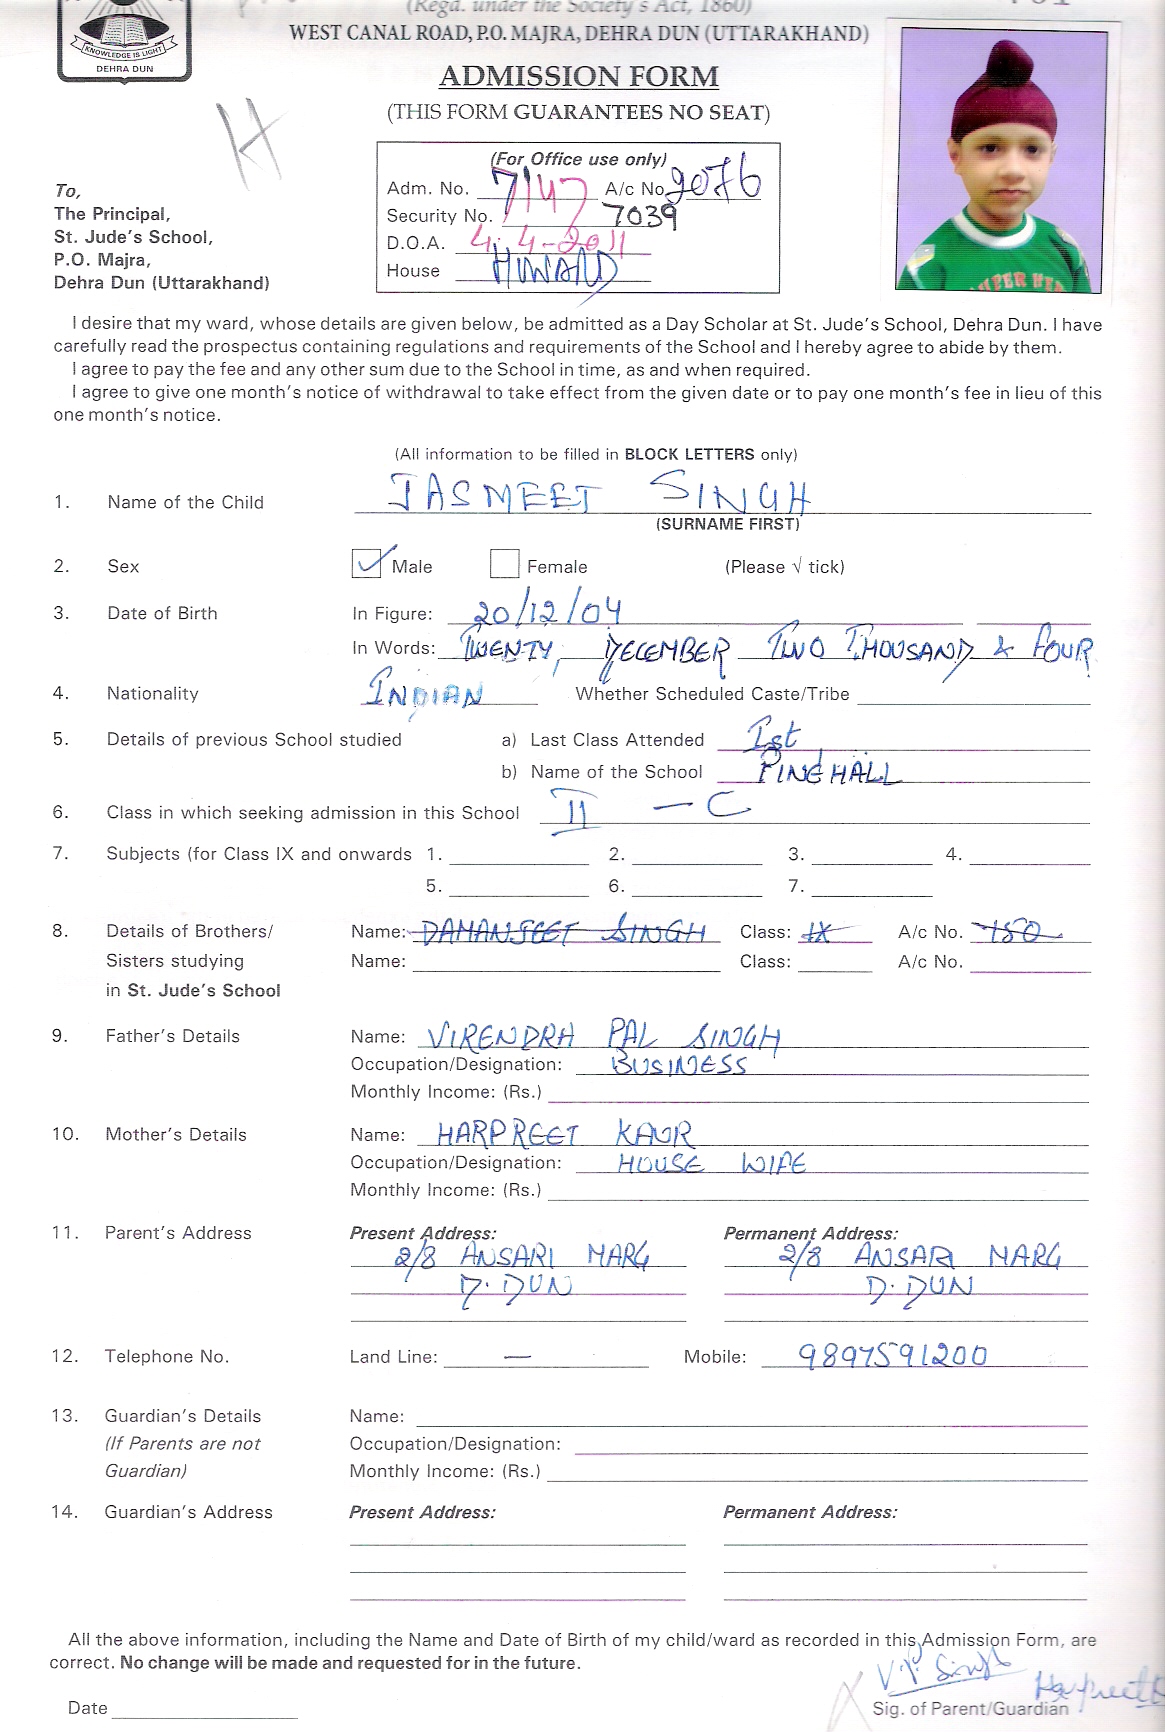 (Regd. under the Society's Act, 1860)
WEST CANAL ROAD, P.O. MAJRA, DEHRA DUN (UTTARAKHAND)
KNOWLEDGE IS LIGHT
DEHRA DUN
ADMISSION FORM
(THIS FORM GUARANTEES NO SEAT)
H
(For Office use only)
Adm. No. 7147 A/c No. 9076
Security No. 7039
D.O.A. 4-4-2011
House
To,
The Principal,
St. Jude's School,
P.O. Majra,
Dehra Dun (Uttarakhand)
I desire that my ward, whose details are given below, be admitted as a Day Scholar at St. Jude's School, Dehra Dun. I have
carefully read the prospectus containing regulations and requirements of the School and I hereby agree to abide by them.
I agree to pay the fee and any other sum due to the School in time, as and when required.
I agree to give one month's notice of withdrawal to take effect from the given date or to pay one month's fee in lieu of this
one month's notice.
(All information to be filled in BLOCK LETTERS only)
1. Name of the Child JASMEET SINGH
(SURNAME FIRST)
2. Sex Male Female (Please √ tick)
3. Date of Birth In Figure: 20/12/04
In Words: TWENTY, DECEMBER TWO THOUSAND & FOUR
4. Nationality INDIAN Whether Scheduled Caste/Tribe
5. Details of previous School studied a) Last Class Attended Ist
b) Name of the School PINEHALL
6. Class in which seeking admission in this School II - C
7. Subjects (for Class IX and onwards 1. 2. 3. 4.
5. 6. 7.
8. Details of Brothers/ Name: DAMANJEET SINGH Class: IX A/c No. 750
Sisters studying Name: Class: A/c No.
in St. Jude's School
9. Father's Details Name: VIRENDRA PAL SINGH
Occupation/Designation: BUSINESS
Monthly Income: (Rs.)
10. Mother's Details Name: HARPREET KAUR
Occupation/Designation: HOUSE WIFE
Monthly Income: (Rs.)
11. Parent's Address Present Address: Permanent Address:
2/8 ANSARI MARG 2/8 ANSARI MARG
D. DUN D. DUN
12. Telephone No. Land Line: — Mobile: 9897591200
13. Guardian's Details Name:
(If Parents are not Occupation/Designation:
Guardian) Monthly Income: (Rs.)
14. Guardian's Address Present Address: Permanent Address:
All the above information, including the Name and Date of Birth of my child/ward as recorded in this Admission Form, are
correct. No change will be made and requested for in the future.
V.P. Singh Harpreet
Date Sig. of Parent/Guardian